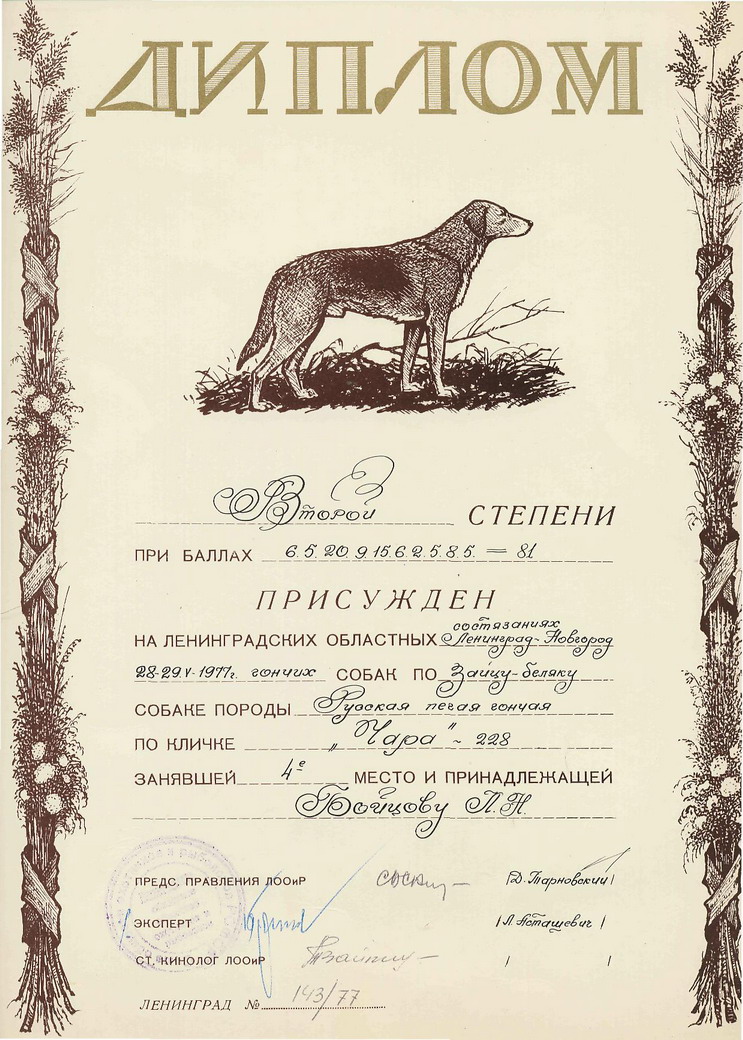 ДИПЛОМ
Второй СТЕПЕНИ
ПРИ БАЛЛАХ 6.5.20.9.15.6.2.5.8.5. = 81
ПРИСУЖДЕН
состязаниях
НА ЛЕНИНГРАДСКИХ ОБЛАСТНЫХ Ленинград-Новгород
28-29.V-1977г. гончих СОБАК ПО Зайцу-беляку
СОБАКЕ ПОРОДЫ Русская пегая гончая
ПО КЛИЧКЕ „Чара" ~ 228
ЗАНЯВШЕЙ 4е МЕСТО И ПРИНАДЛЕЖАЩЕЙ
Бойцову Л.Н.
ПРЕДС. ПРАВЛЕНИЯ ЛООиР /Д. Тарновский/
ЭКСПЕРТ /Л. Асташевич /
СТ. КИНОЛОГ ЛООиР / /
ЛЕНИНГРАД № 143/77